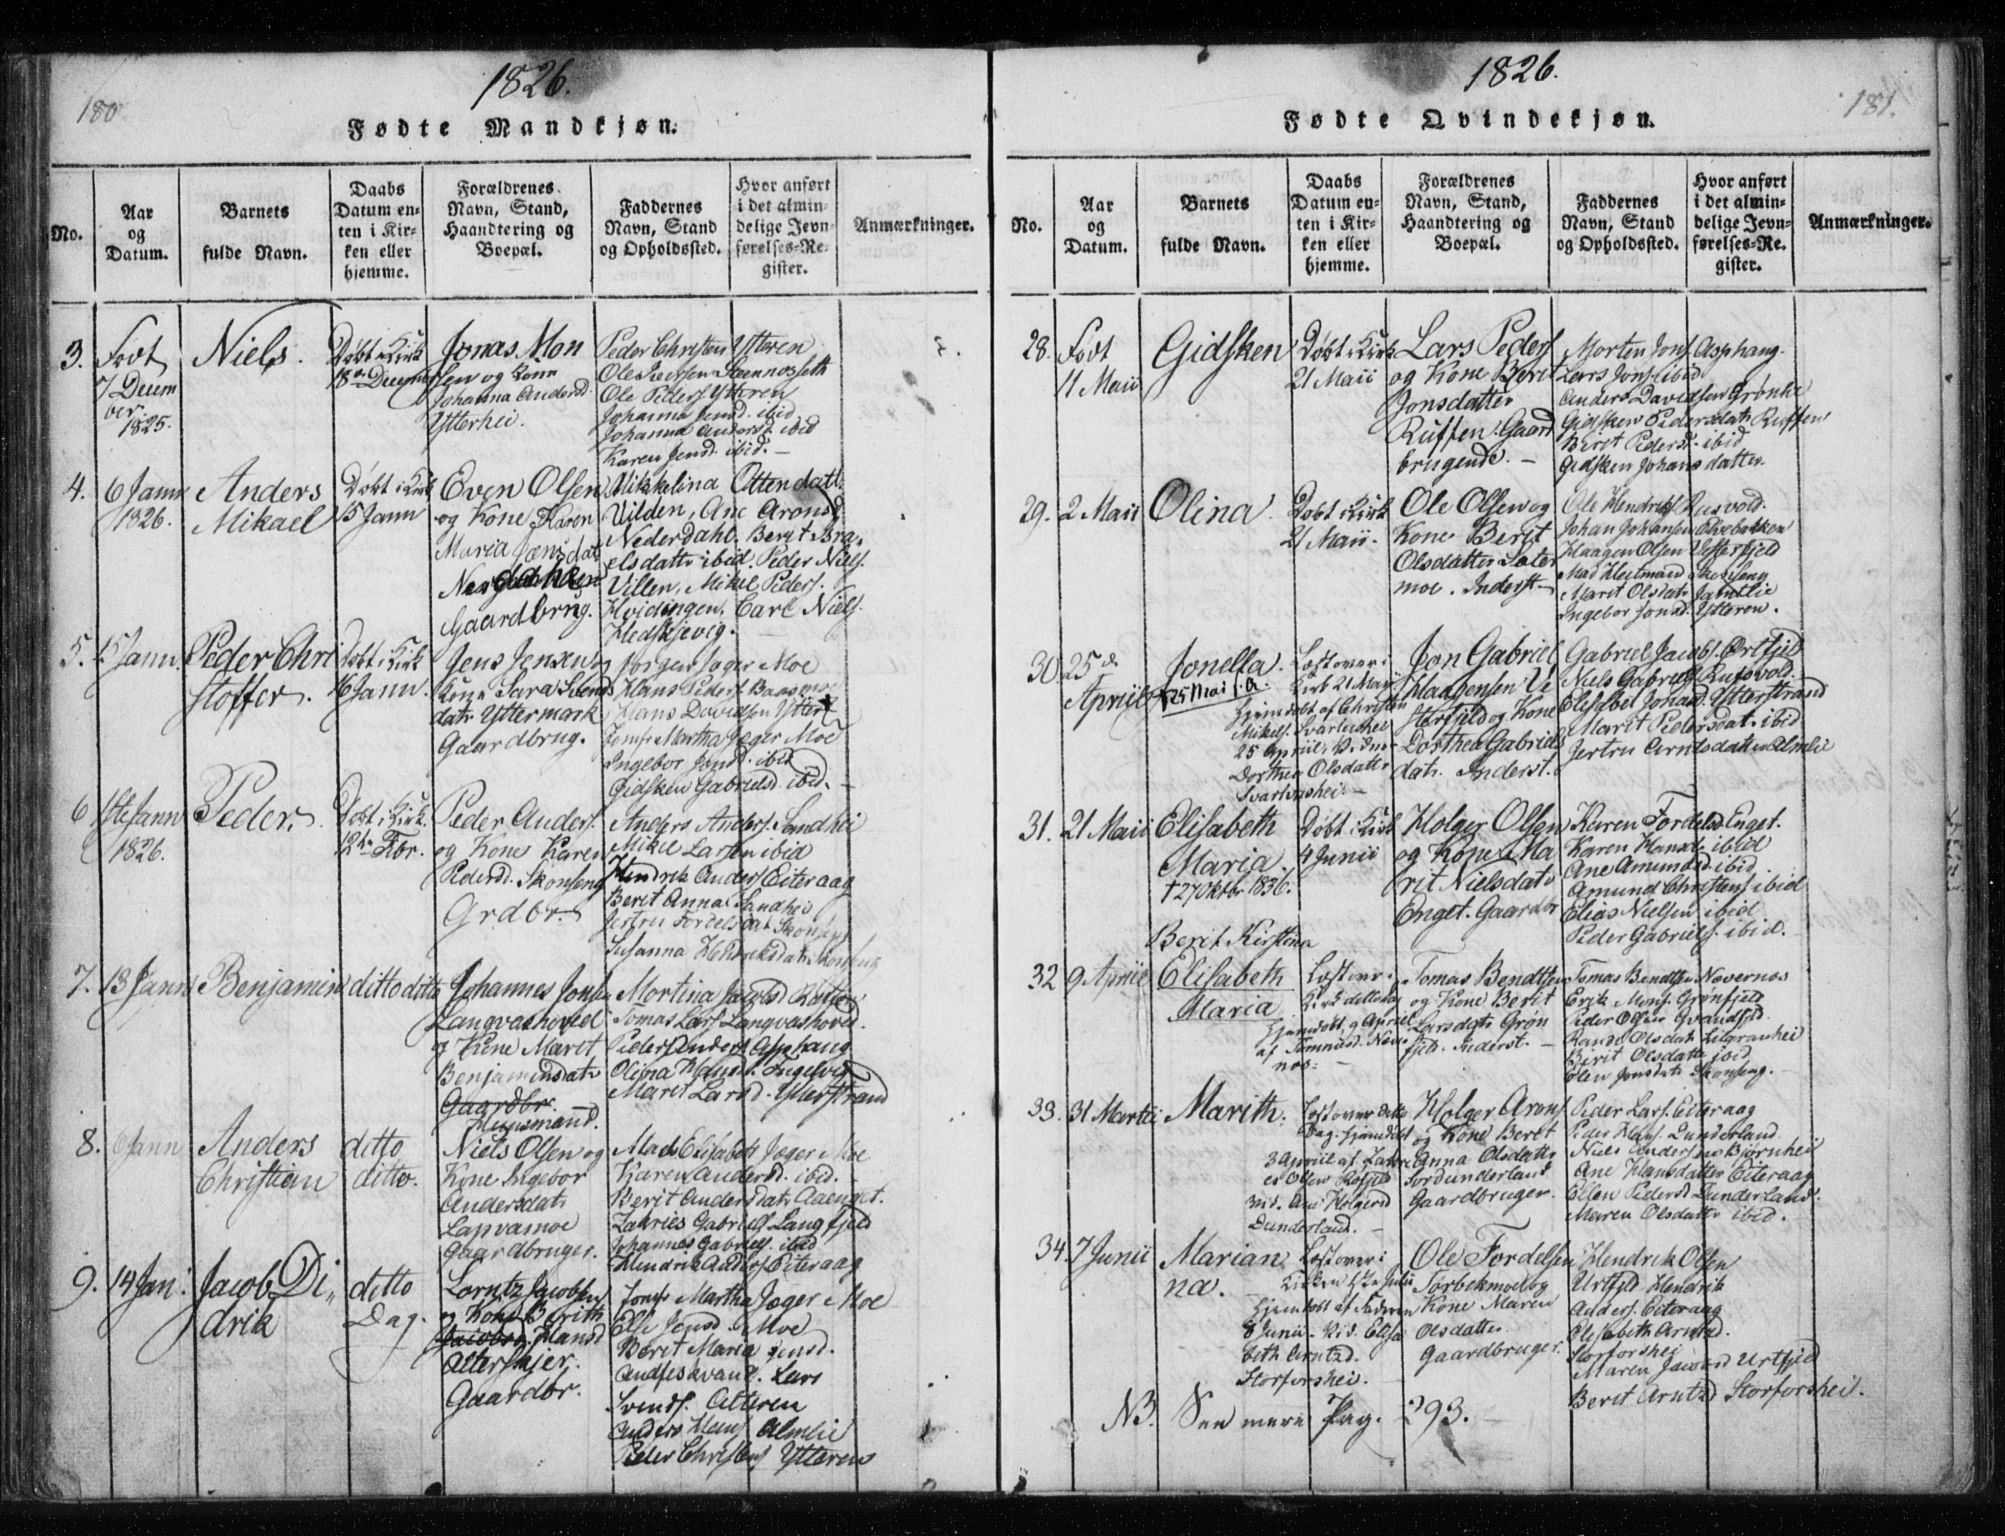 180
1826.
Fødte Mandkjøn.
No.
Aar
og
Datum.
Barnets
fulde Navn.
Daabs
Datum en-
ten i Kir-
ken eller
hjemme.
Forældrenes
Navn, Stand,
Haandtering og
Boepæl.
Faddernes
Navn, Stand
og Opholdssted.
Hvor anført
i det almin-
delige Jevn-
førelses-Re-
gister.
Anmærkninger.
3.
Født
7 Decem
ber
1825.
Niels.
Døbt i Kirk
18de Decemb
Jonas Mon
sen og Kone
Johanna Andersd
Ytterhei.
Peder Christens Ytteren
Ole Pedersen
Ole Peders Ytteren
Johanna Jensd. ibid
Johanna Andersd ibid
Karen Jensd. ibid.
4.
6 Jann
1826.
Anders
Mikael
Døbt i Kirk
15 Jann
Even Olsen
og Kone Karen
Maria Jensdat
Gaardbrug.
Mikkelina Ottendatt.
Vilden, Ane Aronsd
Nederdahl. Berit Bra
elsdattr ibid. Peder Niels.
Villen, Mikel Peders.
Hvidingen, Carl Niels.
Hedskjevig.
5.
15 Jann.
Peder Chri
stoffer.
Døbt i Kirk
16 Jann.
Jens Jensen og
Kone Sara
datr Yttermark
Gaardbrug.
Jørgen Jæger Moe
Hans Peders Baasmo
Hans Davidsen Ytter
Jomfr Martha Jæger Moe
Ingebor Jonsd. ibid
Gidsken Gabrielsd ibid.
6
1ste Jann
1826.
Peder.
Døbt i Kirk.
12te Fbr.
Peder Anders.
og Kone Karen
Pedersd. Skonseng
Grdbr.
Anders Anders. Sandhei
Mikel Larsen ibid
Hendrik Anders Eiteraag
Berit Anna Sandhei
Jertru Fordelsdat Skonseng
Susanna Henriksdatr Skonseng
7.
13 Jann
Benjamin
ditto ditto
Johannes Jons
Langvashoved
og Kone Maret
Benjaminsdatr
Gaardbr.
Huusmand.
Mortina Jacobsd
Tomas Lars Langvashoved.
Peder Anders Asphaug
Olina Hansd. Ingelvig
Maret Larsd. Ytterstrand
8.
6 Jann
Anders
Christian
ditto
ditto.
Niels Olsen og
Kone Ingebor
Andersdatr
Lapvamoe
Gaardbruger.
Mads Elisabeth Jæger Moe
Karen Andersd. ibid.
Berit Andersdatr Aaenget.
Zakries Gabriels Langfjeld
Johannes Gabriels. ibid
Hendrik Anders Eiteraag
9.
14 Jan.
Jacob Di„
drik
ditto
Dag.
Lorntz Jacobsen
og Kone Berith
Jacobsd. Hansd
Alterskjer.
Gaardbr.
Jomfr Martha Jæger Moe
Else Jensd. Moe
Berit Maria Jensd.
Andfiskvand. Lars
Svends. Alteren
Anders Hans Almlie
Peder Christens Ytteren
1826.
181.
Fødte Qvindekjøn.
No.
Aar
og
Datum.
Barnets
fulde Navn.
Daabs
Datum en-
ten i Kir-
ken eller
hjemme.
Forældrenes
Navn, Stand,
Haandtering og
Boepæl.
Faddernes
Navn, Stand
og Opholdssted.
Hvor anført
i det almin-
delige Jevn-
førelses-Re-
gister.
Anmærkninger.
28.
Født
11 Maii
Gidsken
Døbt i Kirk
21 Maii
Lars Peders
og Kone Berit
Jonsdatter
Ruffen. Gaard
brugende.
Morten Jons. Asphaug.
Lars Jons. ibid
Anders Davidsen Grønhe
Gidsken Pedersdatr Ruffen
Berit Pedersd. ibid
Gidsken Johansdatter.
29.
2 Maii
Olina
Døbt i Kirk
21 Maii.
Ole Olsen og
Kone Berit
Olsdatter Sæter
moe. Inderst.
Ole Hendriks Rusvold.
Johan Johansen Elvebakken
Haagen Olsen Vesterfjeld
Mad Heitman Skonseng
Maret Olsdatr Jamtlie
Ingebor Jonsd. Ytteren.
30
25de
April
Jonella.
† 25 Mai s. A.
Læst over i
Kirk 21 Maii
Hjemdøbt af Christen
Mikels. Svartvashei
25 April, Vidne
Dorthea Olsdatter
Svartvashei.
Jon Gabriel
Haagensen Ve
sterfjeld og Kone
Dorthea Gabriels
datr. Inderst.
Gabriel Jacobs. Ørtfjeld
Niels Gabriels Rufsvold.
Elisabet Johansd. Ytterstrand
Marit Pedersdat. ibid
Jertru Arntsdatter Almlie
31.
21 Maii
Elisabeth
Maria
† 27 Oktbr. 1836.
Døbt i Kirk
4 Junii
Holger Olsen
og Kone Ma
rit Nielsdatr
Enget. Gaardbr
Karen Fordelsd Enget.
Karen Hansd. ibid
Ane Amundsd ibid
Amund Christens ibid
Elias Nielsen ibid
Peder Gabriels. ibid.
32
9 April
Berit Kirstina
Elisabeth
Maria
Læst over i
Kirk ditto Dag
Hjemdøbt 9 April
af Tomas Bends. Næver
nes.
Tomas Bendtsen
og Kone Berit
Larsdatr Grøn
fjeld. Inderst.
Tomas Bendtsen Nævernes
Erik Mons. Grønfjeld
Peder Olsen
Rande Olsdat. Lilgranhei
Berit Olsdatter ibid
Ellen Jonsdatr Skonseng.
33.
31 Martii
Marith.
Læst over ditto
Dag. Hjemdøbt
3 April af Zakri
es Olsen Rosfjeld
vid. Ane Holgersd
Dunderland.
Holger Arons
og Kone Beret
Anna Olsdatter
Sørdunderland
Gaardbruger.
Peder Lars. Eiteraag
Peder Hans. Dunderland.
Niels Andersen Bjørnhei
Ane Hansdatter Eiteraag
Ellen Pedersd. Dunderland.
Maren Olsdatr ibid.
34.
7 Junii
Marian
na.
Læst over i
Kirken Julii
Hjemdøbt af Faderen
8 Junii. Vid. Elisa
beth Arntzd.
Storforshei.
Ole Fordelsen
Torbekmoe og
Kone Maren
Olsdatter
Gaardbruger.
Hendrik Olsen
Urtfjeld Hendrik
Anders. Eiteraag
Elisabeth Arntzd.
Storforshei
Maren Jacobsd Urtfjeld
Berit Arntzd Storforshei.
NB. See mere Pag. 293.